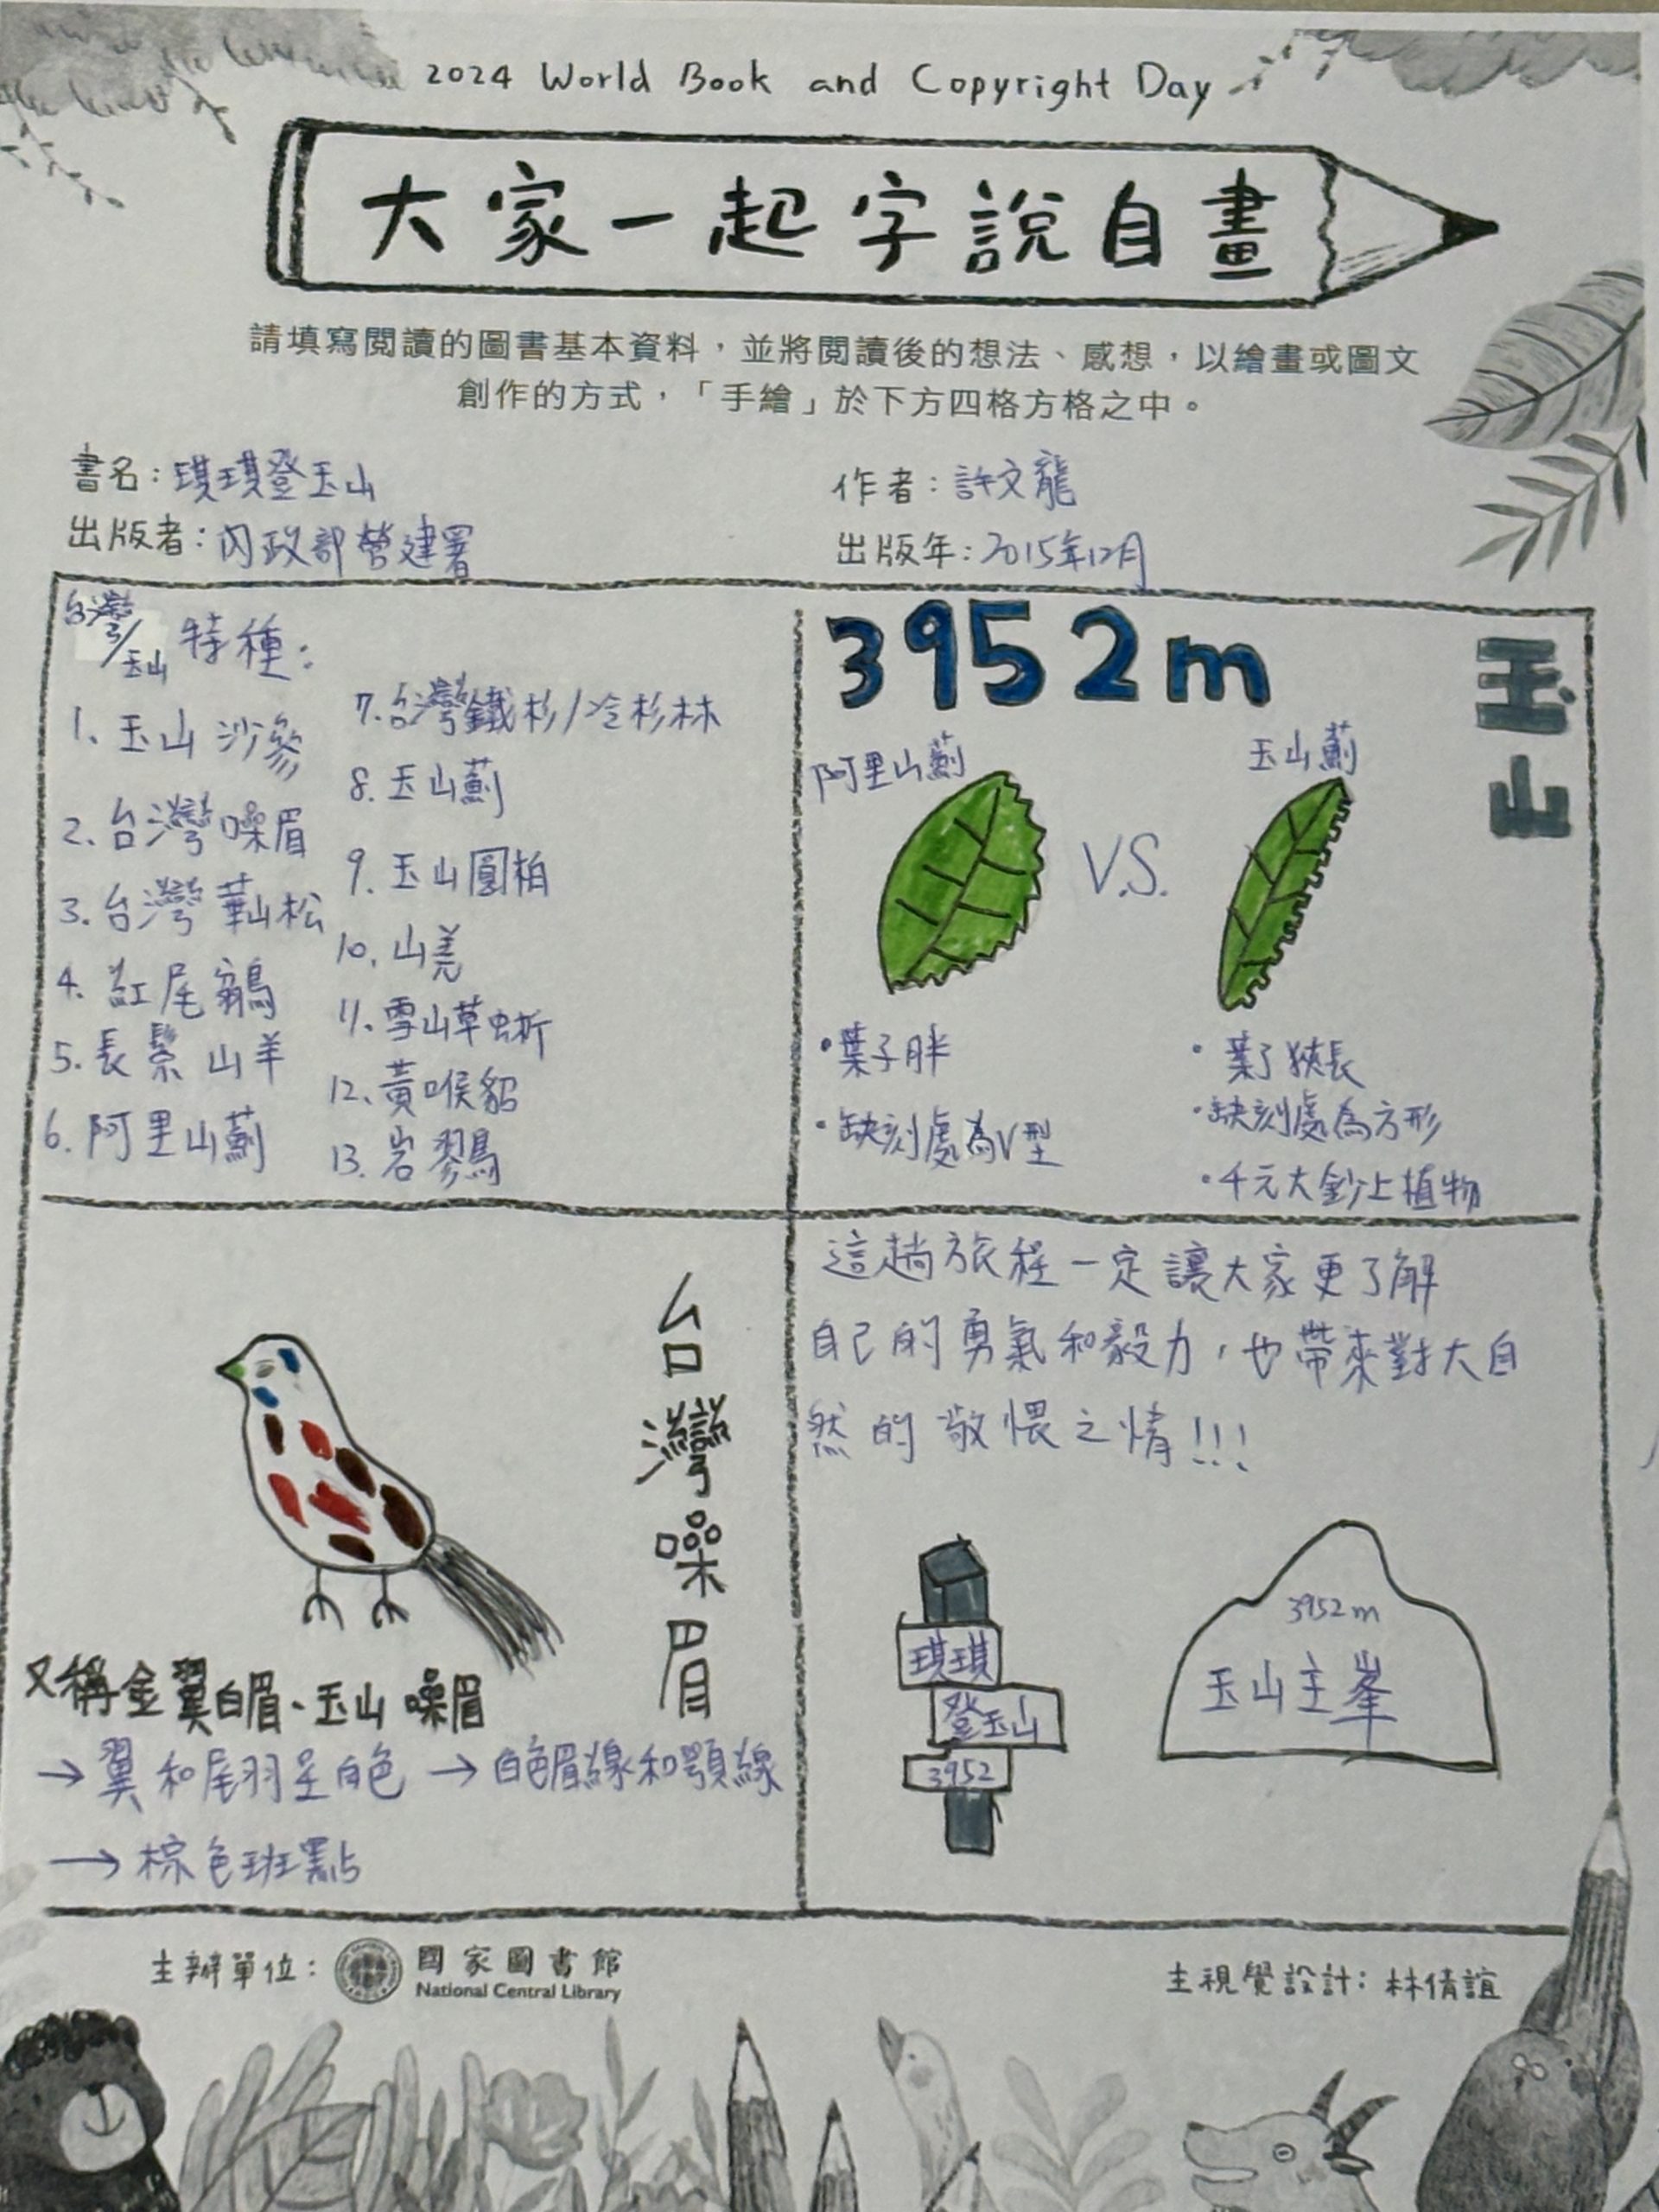 2024 World Book and Copyright Day
大家一起字說自畫
請填寫閱讀的圖書基本資料，並將閱讀後的想法、感想，以繪畫或圖文
創作的方式，「手繪」於下方四格方格之中。
書名：琪琪登玉山
作者：許文龍
出版者：內政部營建署
出版年：2015年12月
台灣/玉山 特種：
1. 玉山沙參
2. 台灣噪眉
3. 台灣華山松
4. 紅尾鶲
5. 長鬃山羊
6. 阿里山薊
7. 台灣鐵杉/冷杉林
8. 玉山薊
9. 玉山圓柏
10. 山羌
11. 雪山草蜥
12. 黃喉貂
13. 岩鷚
3952m
玉山
阿里山薊
V.S.
玉山薊
•葉子胖
•缺刻處為V型
•葉子狹長
•缺刻處為方形
•千元大鈔上植物
台灣噪眉
又稱金翼白眉、玉山噪眉
→翼和尾羽呈白色 →白色眉線和顎線
→棕色班點
這趟旅程一定讓大家更了解
自己的勇氣和毅力，也帶來對大自
然的敬懷之情!!!
琪琪
登玉山
3952
3952m
玉山主峯
主辦單位：國家圖書館
National Central Library
主視覺設計：林倩誼